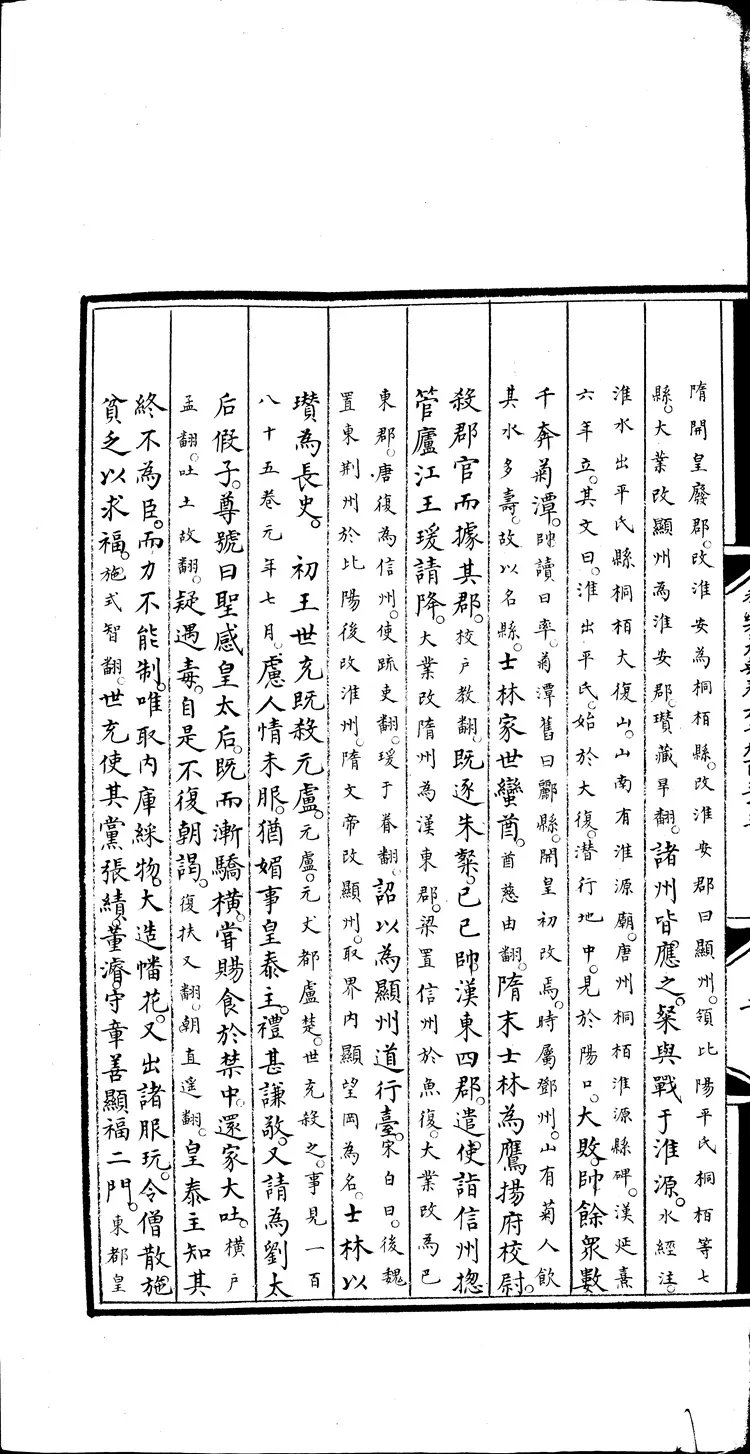 隋開皇廢郡。改淮安為桐栢縣。改淮安郡曰顯州。領比陽平氏桐栢等七
縣。大業改顯州為淮安郡。瓚藏旱翻。諸州皆應之。粲與戰于淮源。水經注。
淮水出平氏縣桐栢大復山。山南有淮源廟。唐州桐栢淮源縣碑。漢延熹
六年立。其文曰。淮出平氏。始於大復。潛行地中。見於陽口。大敗。帥餘眾數
千奔菊潭。帥讀曰率。菊潭舊曰酈縣。開皇初改焉。時屬鄧州。山有菊人飲
其水多壽。故以名縣。士林家世蠻酋。酋慈由翻。隋末士林為鷹揚府校尉。
殺郡官而據其郡。校戶教翻。既逐朱粲。己已帥漢東四郡。遣使詣信州揔
管廬江王瑗請降。大業改隋州為漢東郡。梁置信州於魚復。大業改為巴
東郡。唐復為信州。使疏吏翻。瑗于眷翻。詔以為顯州道行臺。宋白曰。後魏
置東荆州於比陽後改淮州。隋文帝改顯州。取界内顯望岡為名。士林以
瓚為長史。　初王世充既殺元盧。元盧。元文都盧楚。世充殺之。事見一百
八十五卷元年七月。慮人情未服。猶媚事皇泰主。禮甚謙敬。又請為劉太
后假子。尊號曰聖感皇太后。既而漸驕橫。嘗賜食於禁中。還家大吐。橫戶
孟翻。吐土故翻。疑遇毒。自是不復朝謁。復扶又翻。朝直遥翻。皇泰主知其
終不為臣。而力不能制。唯取内庫綵物。大造幡花。又出諸服玩。令僧散施
貧乏以求福。施式智翻。世充使其黨張績。董濬。守章善顯福二門。東都皇